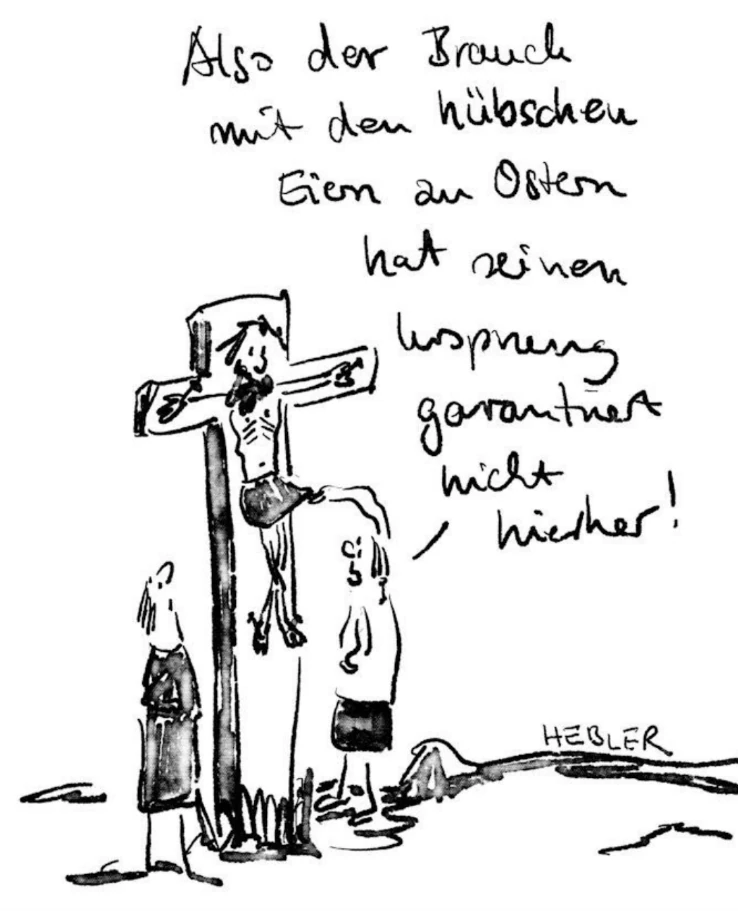 Also der Brauch
mit den hübschen
Eiern an Ostern
hat seinen
Ursprung
garantiert
nicht
hierher!
HEBLER